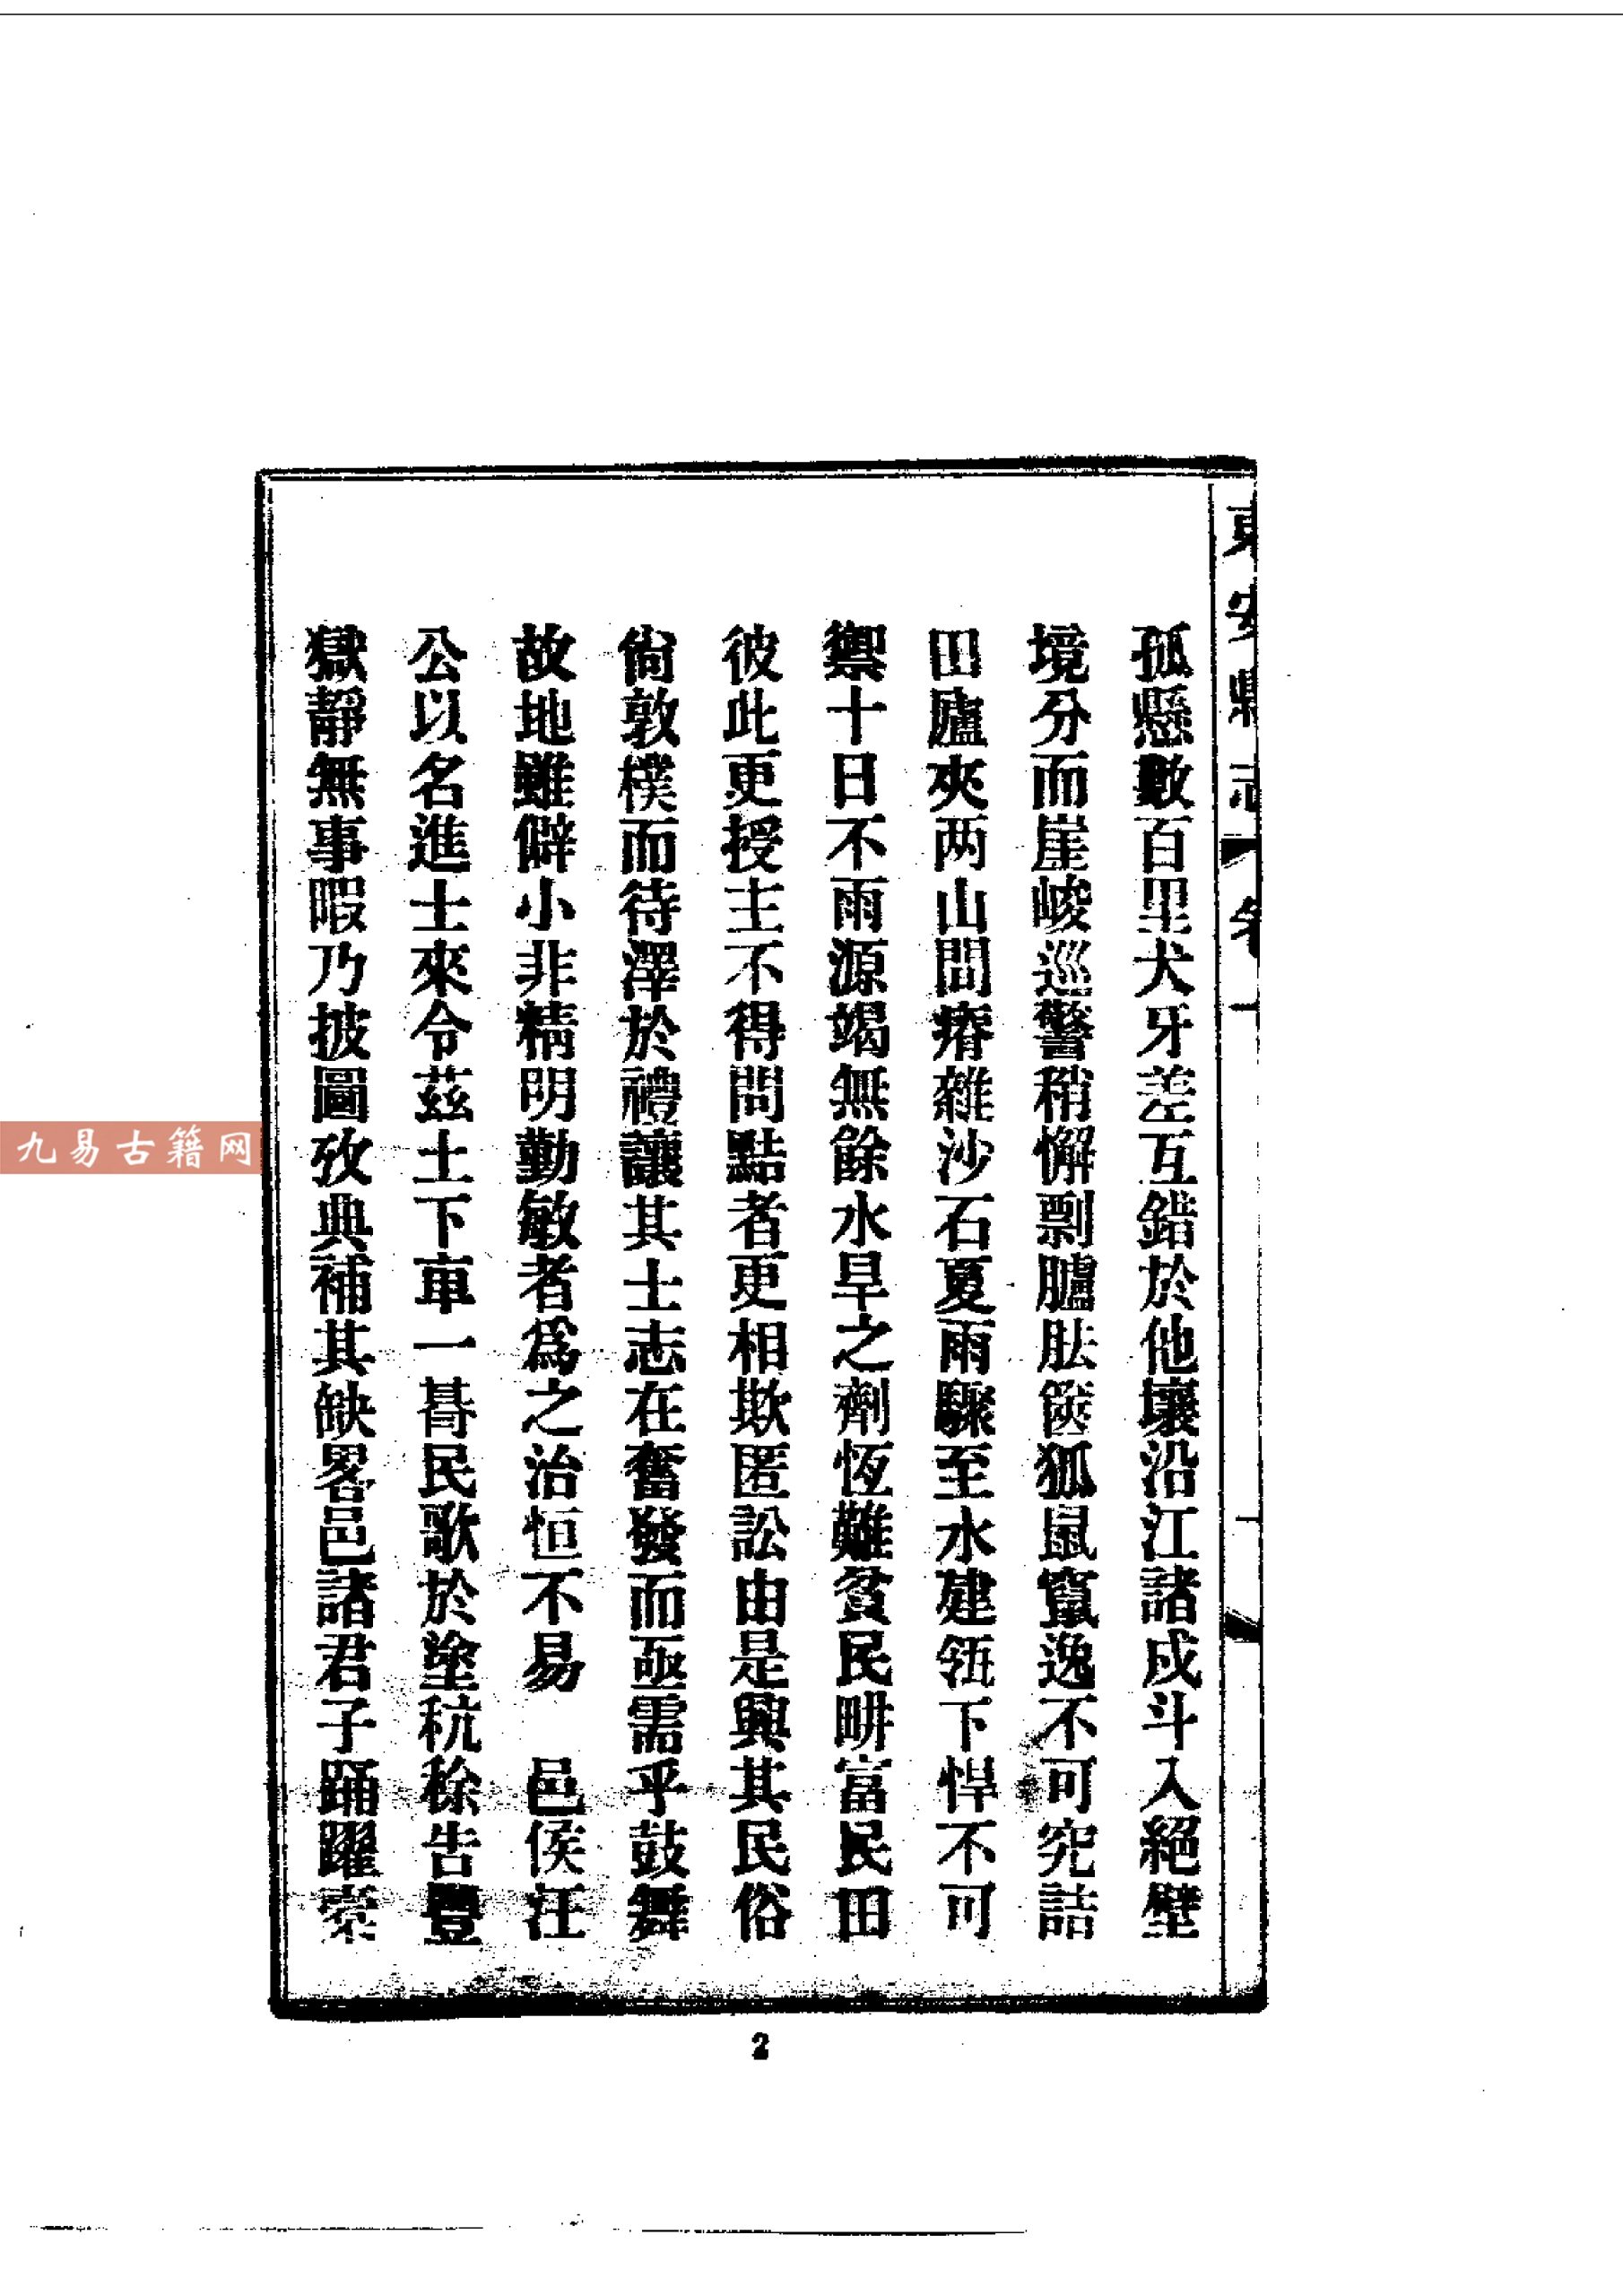 東安縣志 卷一
孤懸數百里犬牙差互錯於他壤沿江諸戍斗入絕壁
境分而崖峻巡警稍懈剽臚胠篋狐鼠竄逸不可究詰
田廬夾两山間間瘠雜沙石夏雨驟至水建瓴下悍不可
禦十日不雨源竭無餘水旱之劑恆難貧民畊富民田
彼此更授主不得問黠者更相欺匿訟由是興其民俗
尙敦樸而待澤於禮讓其士志在奮發而亟需乎鼓舞
故地雖僻小非精明勤敏者爲之治恒不易　邑侯汪
公以名進士來令茲土下車一朞民歌於塗秔稌告豐
獄靜無事暇乃披圖攷典補其缺畧邑諸君子踊躍索
2
九易古籍网